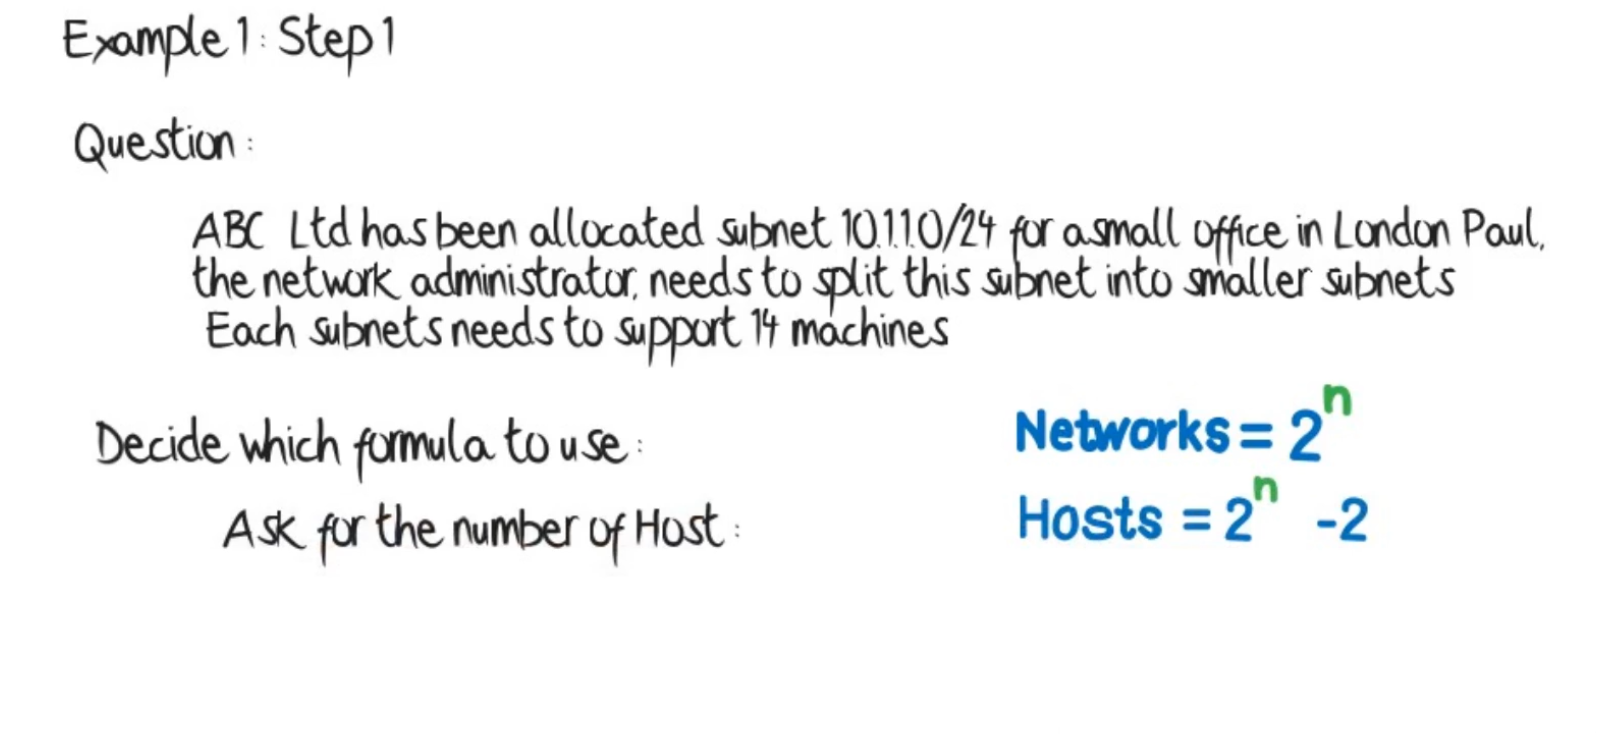 Example 1: Step 1
Question:
ABC Ltd has been allocated subnet 10.1.1.0/24 for a small office in London Paul,
the network administrator, needs to split this subnet into smaller subnets
Each subnets needs to support 14 machines
Decide which formula to use:
Networks = 2^n
Ask for the number of Host:
Hosts = 2^n -2